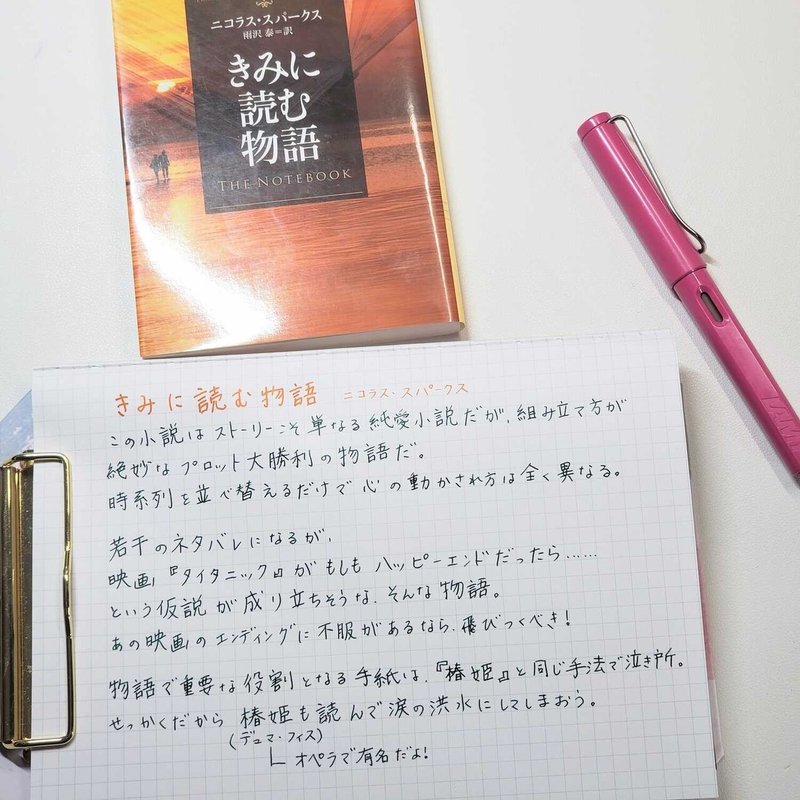 ニコラス・スパークス
雨沢 泰=訳
きみに
読む
物語
THE NOTEBOOK
きみに読む物語 ニコラス・スパークス
この小説はストーリーこそ単なる純愛小説だが、組み立て方が
絶妙なプロット大勝利の物語だ。
時系列を並べ替えるだけで心の動かされ方は全く異なる。
若干のネタバレになるが、
映画『タイタニック』がもしもハッピーエンドだったら……
という仮説が成り立ちそうな、そんな物語。
あの映画のエンディングに不服があるなら、飛びつくべき!
物語で重要な役割となる手紙は、『椿姫』と同じ手法で泣き所。
せっかくだから椿姫も読んで涙の洪水にしてしまおう。
(デュマ・フィス)
オペラで有名だよ!